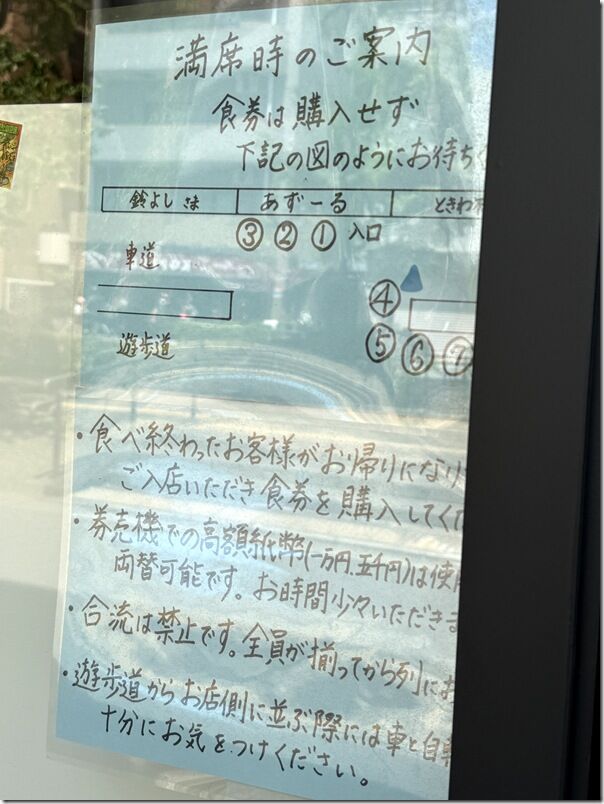 満席時のご案内
食券は購入せず
下記の図のようにお待ち
鈴よし さま
あずーる
ときわ
③ ② ① 入口
車道
④
遊歩道
⑤ ⑥ ⑦
・食べ終わったお客様がお帰りになり
ご入店いただき食券を購入してくだ
・券売機での高額紙幣(一万円、五千円)は使用
両替可能です。お時間少々いただきま
・合流は禁止です。全員が揃ってから列にお
・遊歩道からお店側に並ぶ際には車と自転
十分にお気をつけください。